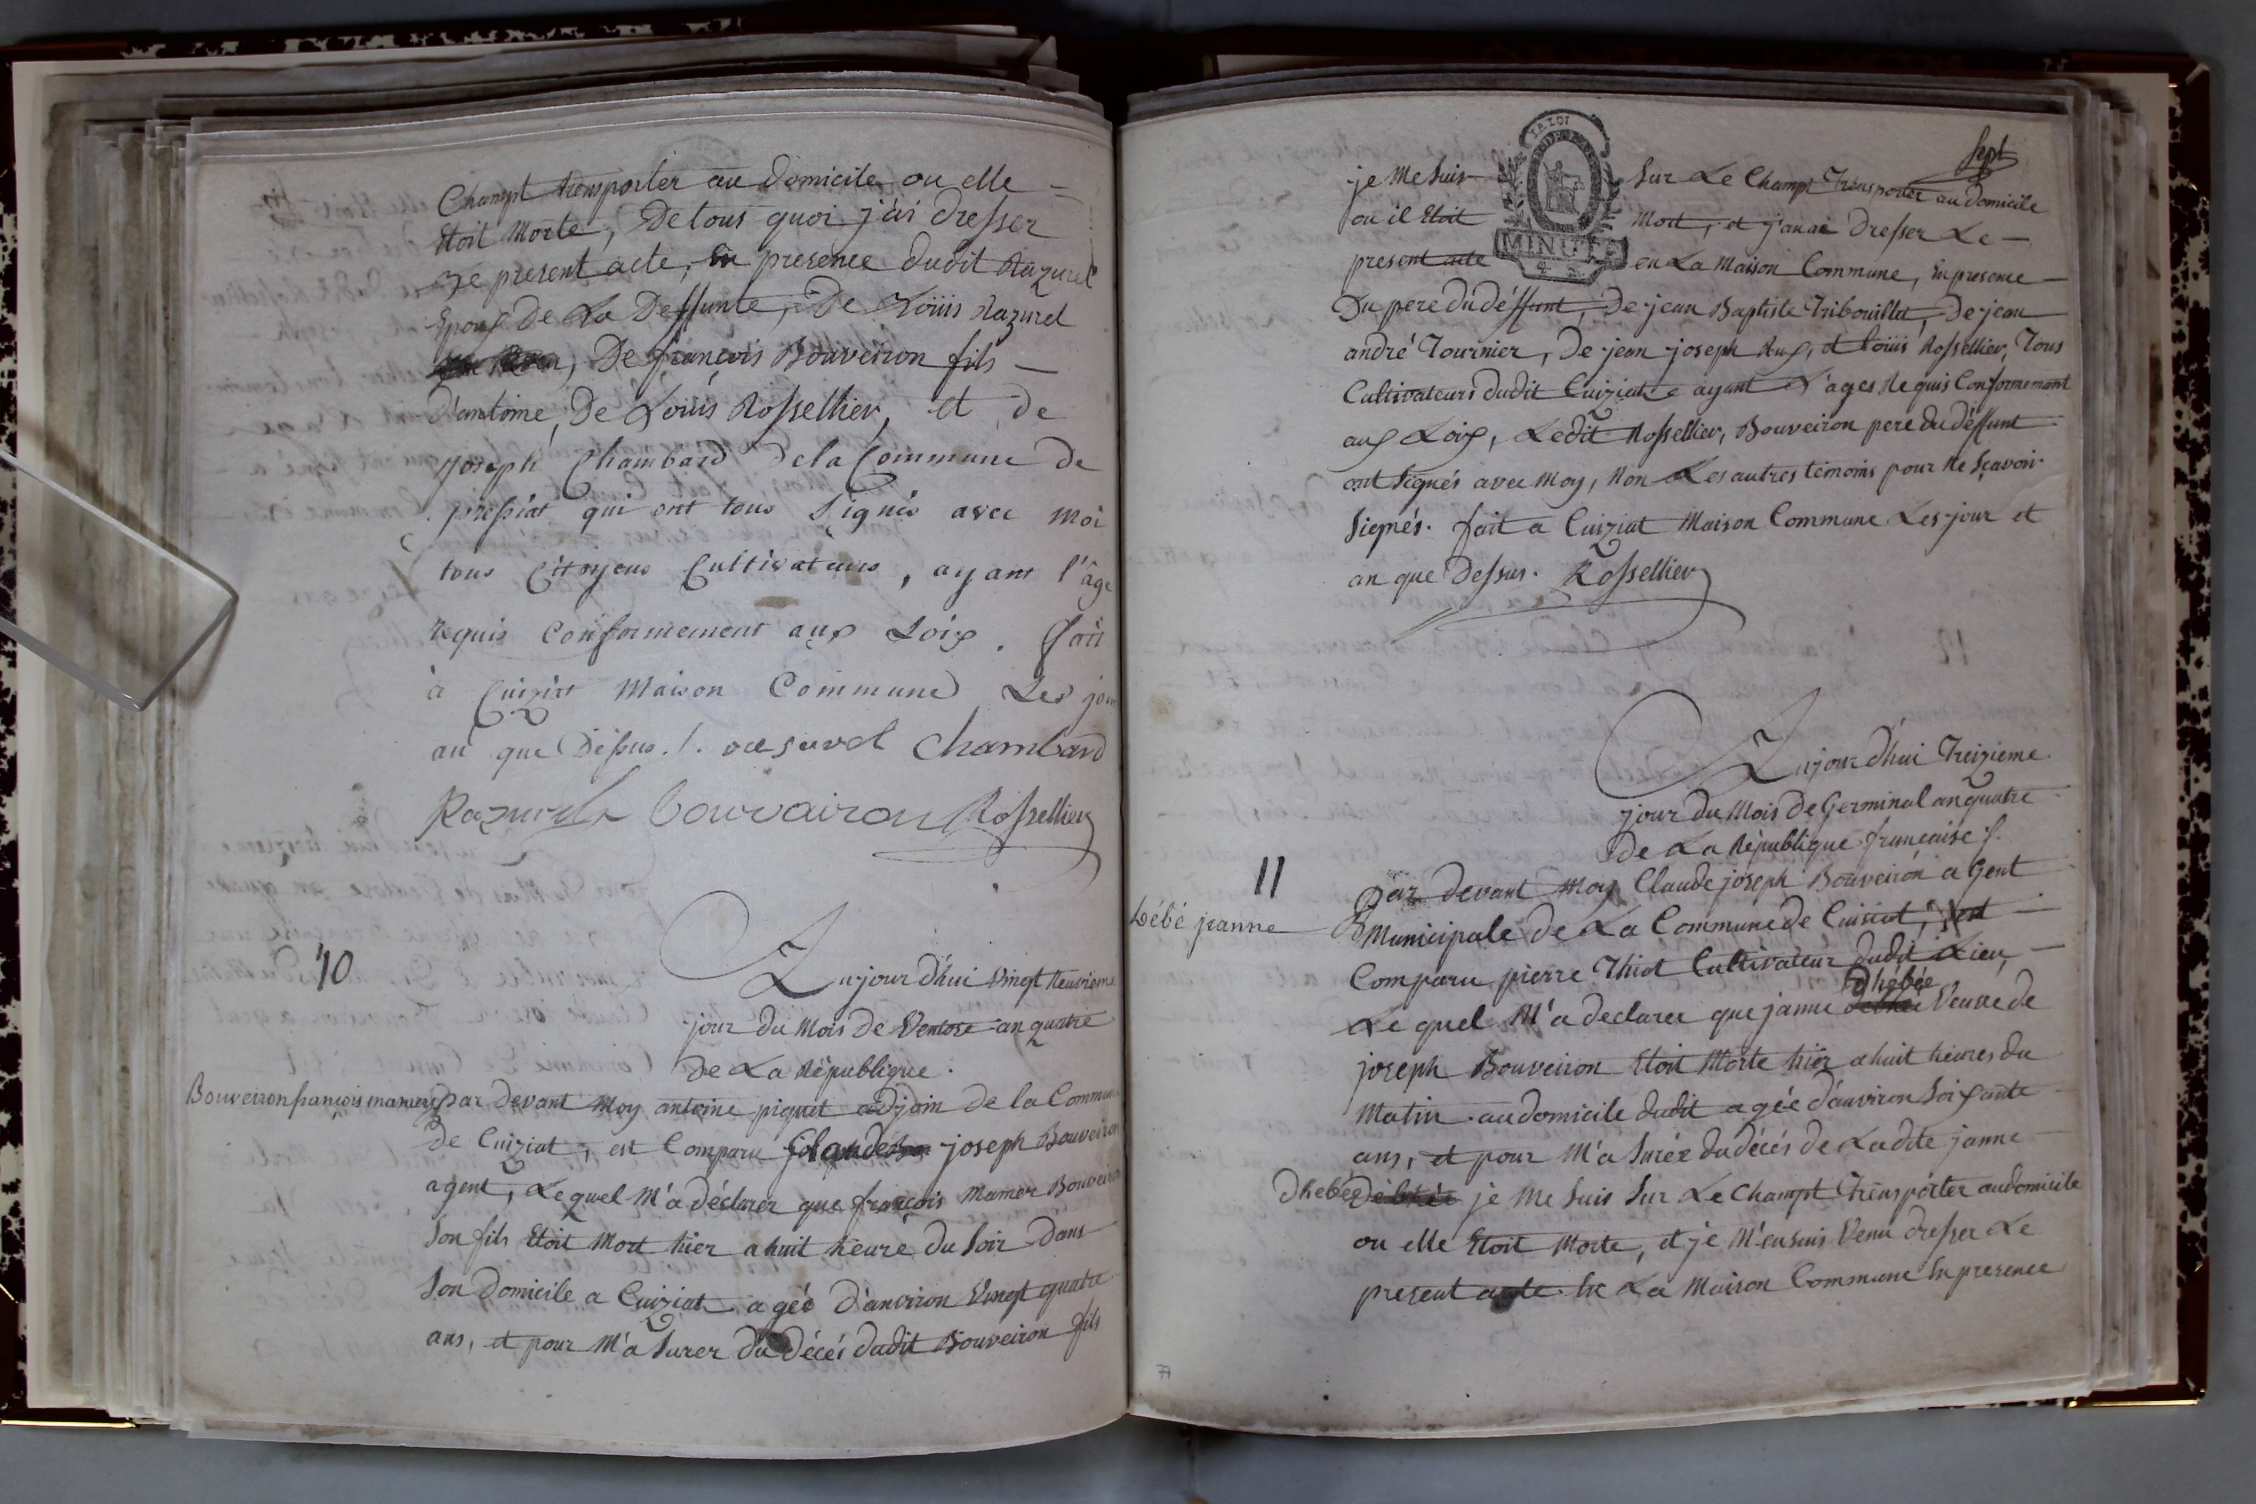 Champt transporter au domicile ou elle -
Etoit Morte, De tous quoi j'ai dresser
Le present acte, En presence dudit Razurel
Epoux De La Deffunte, De Loüis Razurel
De françois Bouveiron fils -
D'antoine, De Louis Rossellier, et de
Joseph Chambard de la Commune de
pressiat qui ont tous Signés avec moi
tous Citoyens Cultivateurs, ayant l'âge
Requis Conformement aux Loix. fait
à Cuiziat Maison Commune Les jour
an que Dessus ./. rasurel Chambard
Razurel bouvairon Rossellier
10
Aujourd'hui vingt neuvieme
jour du Mois de Ventose an quatre
de La République.
Bouveiron françois mamer
par devant Moy antoine piquet adjoin de la Commune
De Cuiziat, est Comparu Claude joseph Bouveiron
agent, Lequel M'a déclarer que françois Mamer Bouveiron
Son fils Etoit Mort hier a huit heure du Soir Dans
Son domicile a Cuiziat agée D'anviron Vingt quatre
ans, et pour M'a Surer du décés dudit Bouveiron fils
Sept
LA LOI
MINUTE
je Me Suis Sur Le Champt Transporter au domicile
ou il Etoit Mort, et j'an ai Dresser Le -
present acte en La Maison Commune, En presence
Du pere du déffunt, De jean Baptiste Tribouillet, De jean
andré Tournier, De jean joseph Rux, et Loüis Rossellier, Tous
Cultivateurs dudit Cuiziat ayant L'ages Requis Conformemant
aux Loix, Ledit Rossellier, Bouveiron pere du déffunt
ont Signés avec Moy, Non Les autres témoins pour Ne Sçavoir
Signés. fait a Cuiziat Maison Commune Les jour et
an que Dessus. Rossellier
11
Aujourd'hui Treizieme
jour du Mois de Germinal an quatre
de La République française ./.
Débé jeanne
par devant Moy Claude joseph Bouveiron agent
Municipale de La Commune de Cuisiat, est
Comparu pierre Thiot Cultivateur dudit Lieu,
Dhébée
Le quel M'a declarer que janne Veuve de
joseph Bouveiron Etoit Morte hier a huit heures du
Matin au domicile dudit agée d'anviron Soixante
ans, et pour M'a Surér du décés de Ladite janne
dhebée je Me Suis Sur Le Champt Transporter au domicile
ou elle Etoit Morte, et je M'en suis Venu dresser Le
present acte En La Maison Commune En presence
77